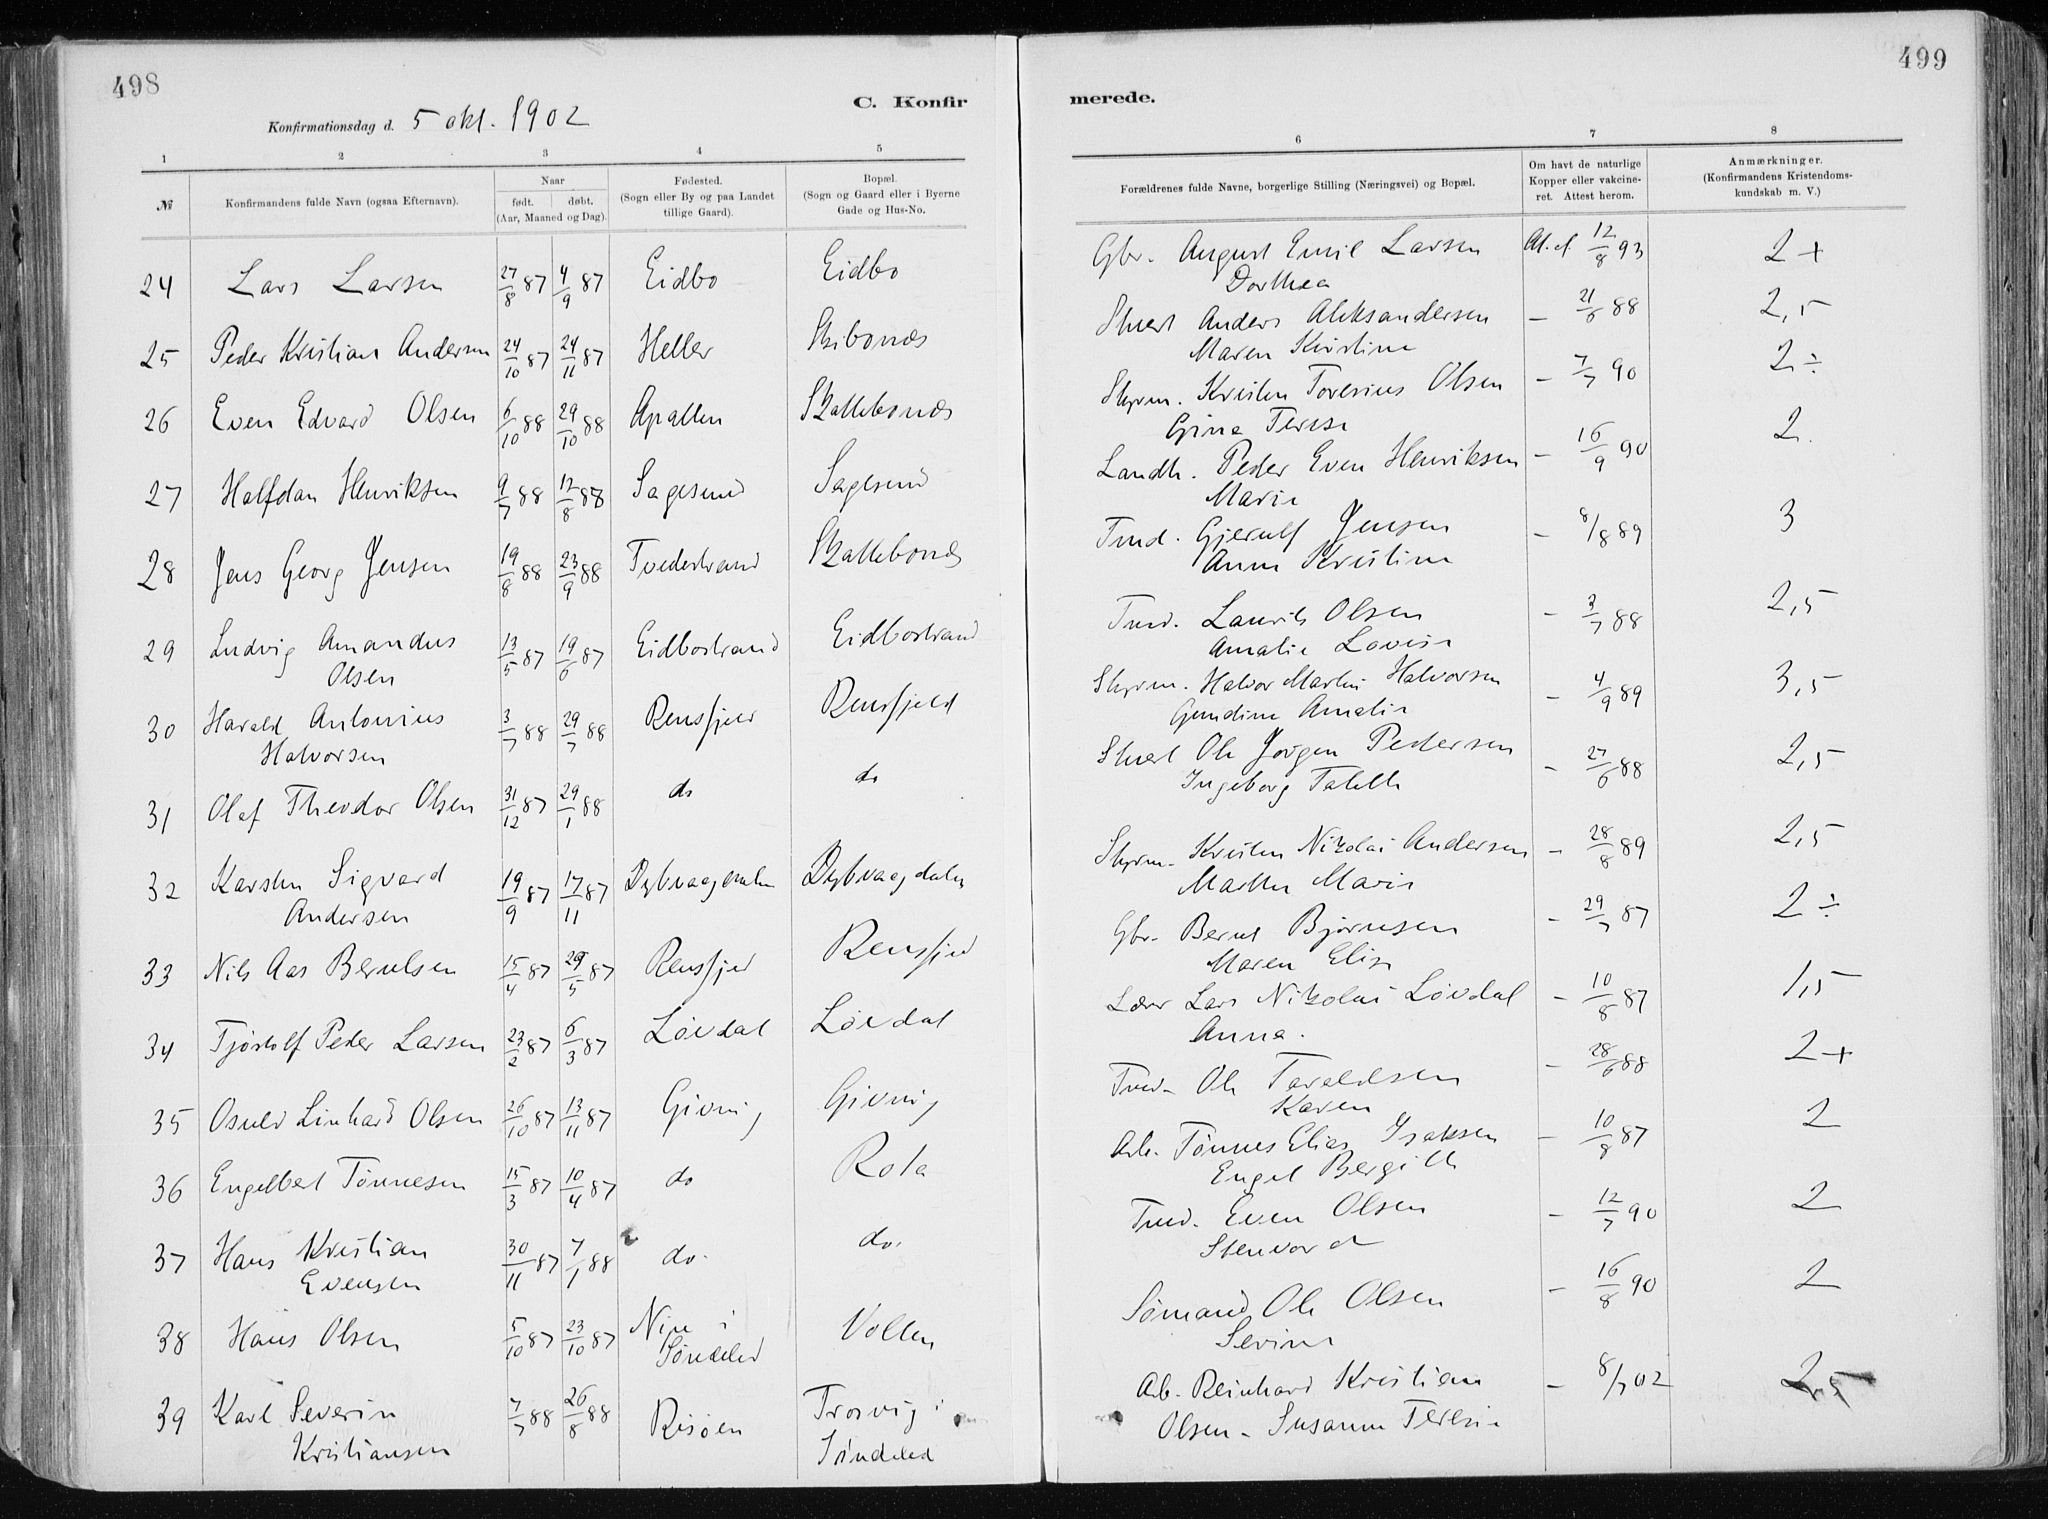 498
Konfirmationsdag d. 5 okt. 1902
C. Konfir
1 2 3 4 5
№
Konfirmandens fulde Navn (ogsaa Efternavn).
Naar
født. døbt.
(Aar, Maaned og Dag).
Fødested.
(Sogn eller By og paa Landet
tillige Gaard).
Bopæl.
(Sogn og Gaard eller i Byerne
Gade og Hus-No.
24 Lars Larsen 27/8 87 4/9 87 Eidbo Eidbo
25 Peder Kristian Andersen 24/10 87 24/11 87 Heller Skibonæs
26 Even Edvard Olsen 6/10 88 29/10 88 Apalten Skattebonæs
27 Halfdan Henriksen 9/7 88 12/8 88 Sagesund Sagesund
28 Jens Georg Jensen 19/8 88 23/9 88 Tvedestrand Skattebonæs
29 Ludvig Amandus 13/5 87 19/6 87 Eidbostrand Eidbostrand
Olsen
30 Harald Antonius 3/7 88 29/7 88 Rensfjeld Rensfjeld
Halvorsen
31 Olaf Theodor Olsen 31/12 87 29/1 88 do do
32 Karsten Sigvard 19/9 87 17/11 87 Dybvaagdalen Dybvaagdalen
Andersen
33 Nils Aas Berntsen 15/4 87 29/5 87 Rensfjed Rensfjed
34 Tjøstolf Peder Larsen 23/2 87 6/3 87 Løvdal Løvdal
35 Osuld Linhard Olsen 26/10 87 13/11 87 Givning Givning
36 Engelbert Tønnesen 15/3 87 10/4 87 do Rota
37 Hans Kristian 30/11 87 7/1 88 do. do.
Evensen
38 Hans Olsen 5/10 87 23/10 87 Nipe i Vollen
Søndeled
39 Karl Severin 7/7 88 26/8 88 Risøen Trosvig i
Kristiansen Søndeled
499
merede.
6 7 8
Forældrenes fulde Navne, borgerlige Stilling (Næringsvei) og Bopæl.
Om havt de naturlige
Kopper eller vakcine-
ret. Attest herom.
Anmærkninger.
(Konfirmandens Kristendoms-
kundskab m. V.)
Gbr. August Emil Larsen At. af 12/8 93 2+
Dorthea
Stuert Anders Aleksandersen – 21/6 88 2,5
Maren Kirstine
Skprm. Kristen Toresius Olsen – 7/7 90 2÷
Gina Terese
Landh. Peder Even Henriksen – 16/9 90 2.
Marie
Tmd. Gjerulf Jensen – 8/8 89 3
Anne Kristine
Tmd. Laurits Olsen – 3/7 88 2,5
Amalie Lovise
Skprm. Halvor Martin Halvorsen – 4/9 89 3,5
Gundine Amalie
Stuert Ole Jørgen Pedersen – 27/6 88 2,5
Ingeborg Taletta
Skprm. Kristen Nikolai Andersen – 28/8 89 2,5
Marthe Marie
Gbr. Bernt Bjørnsen – 29/7 87 2÷
Maren Elise
Lærer Lars Nikolai Løvdal – 10/8 87 1,5
Anna.
Tmd. Ole Taraldsen – 28/6 88 2+
Karen
Arb. Tønnes Elias Isaksen – 10/8 87 2
Engel Bergitte
Tmd. Even Olsen – 12/7 90 2
Stenvor
Sømand Ole Olsen – 16/8 90 2
Sevine
Arb. Reinhard Kristian – 8/7 02 2,5
Olsen – Susanne Teresie